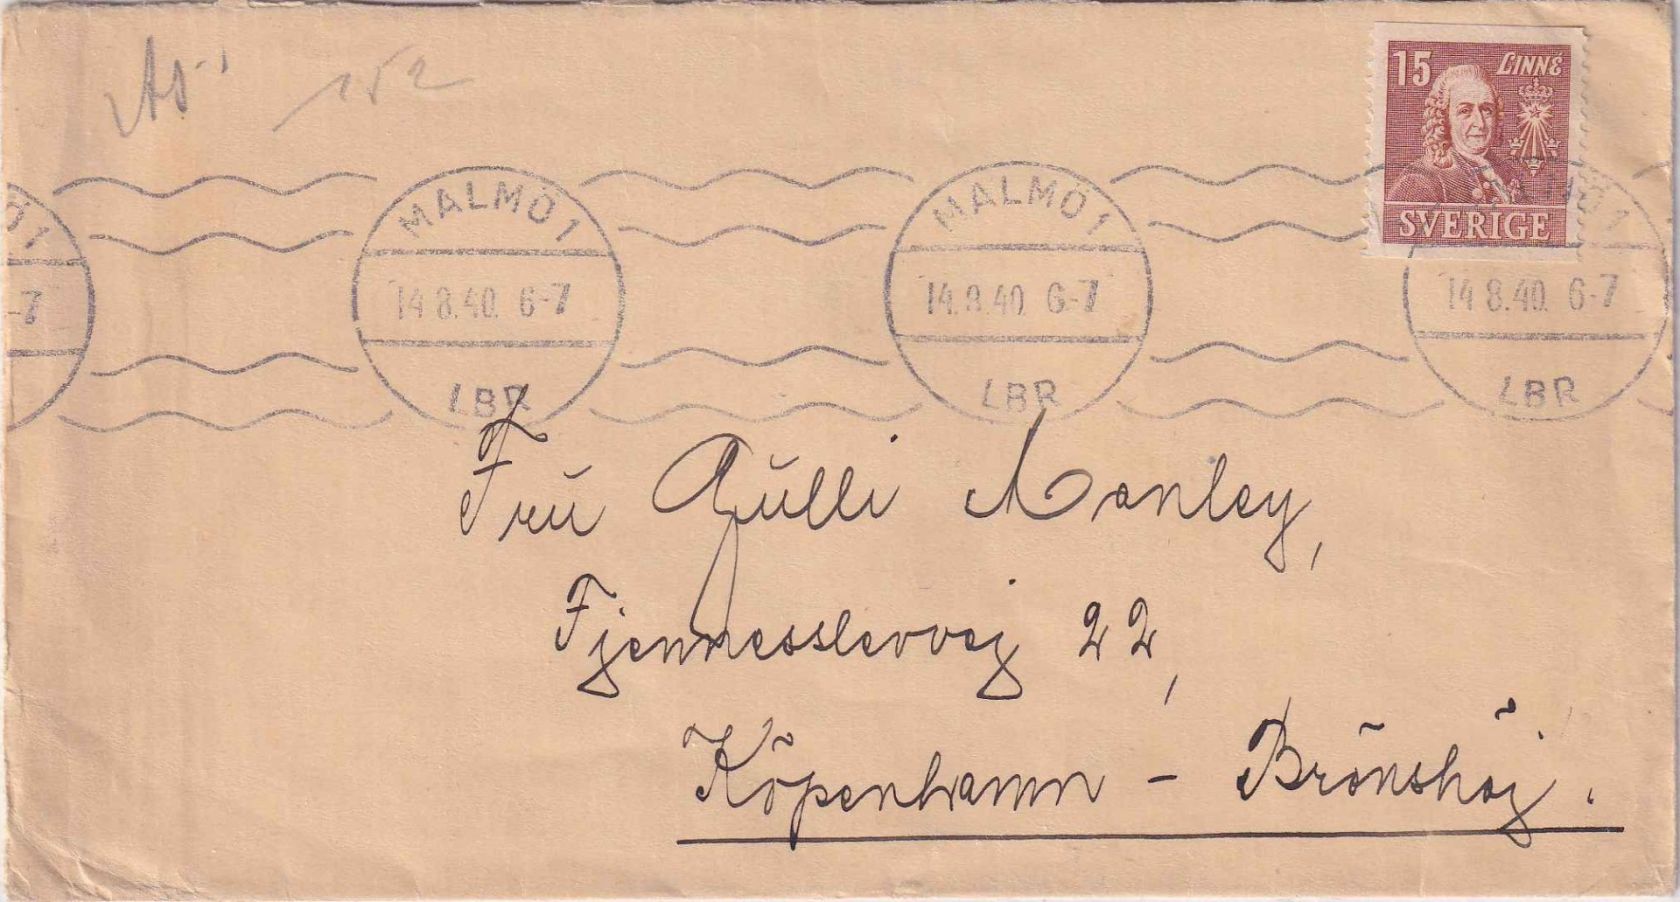 152
15 LINNÉ
SVERIGE
Ö1
-7
MALMÖ 1
14 8.40. 6-7
LBR
MALMÖ 1
14.8.40 6-7
LBR
MÖ 1
14 8.40. 6-7
LBR
Fru Gulli Manley,
Fjennesslevvej 22,
Köpenhamn - Brönshöj.